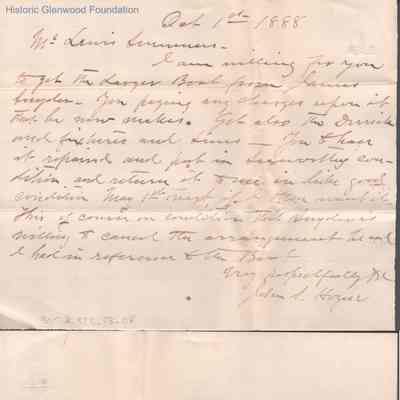 Historic Glenwood Foundation
Oct 1st 1888
Mr Lewis
I am willing for you
to get the Larger Boat from James
Snyder. You paying any charges upon it
that he now makes. Get also the Derrick
and fixtures and lines — You to have
it repaired and put in con-
dition and return it to me in like good
condition May 1st next if I then want it.
This of course on condition that Snyder is
willing to cancel the arrangement he and
I had in reference to the Boat
Very respectfully &c
John S. Hozier